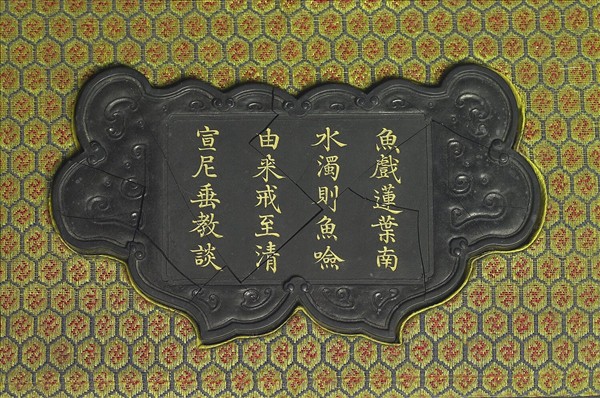 魚戲蓮葉南
水濁則魚噞
由來戒至清
宣尼垂教談